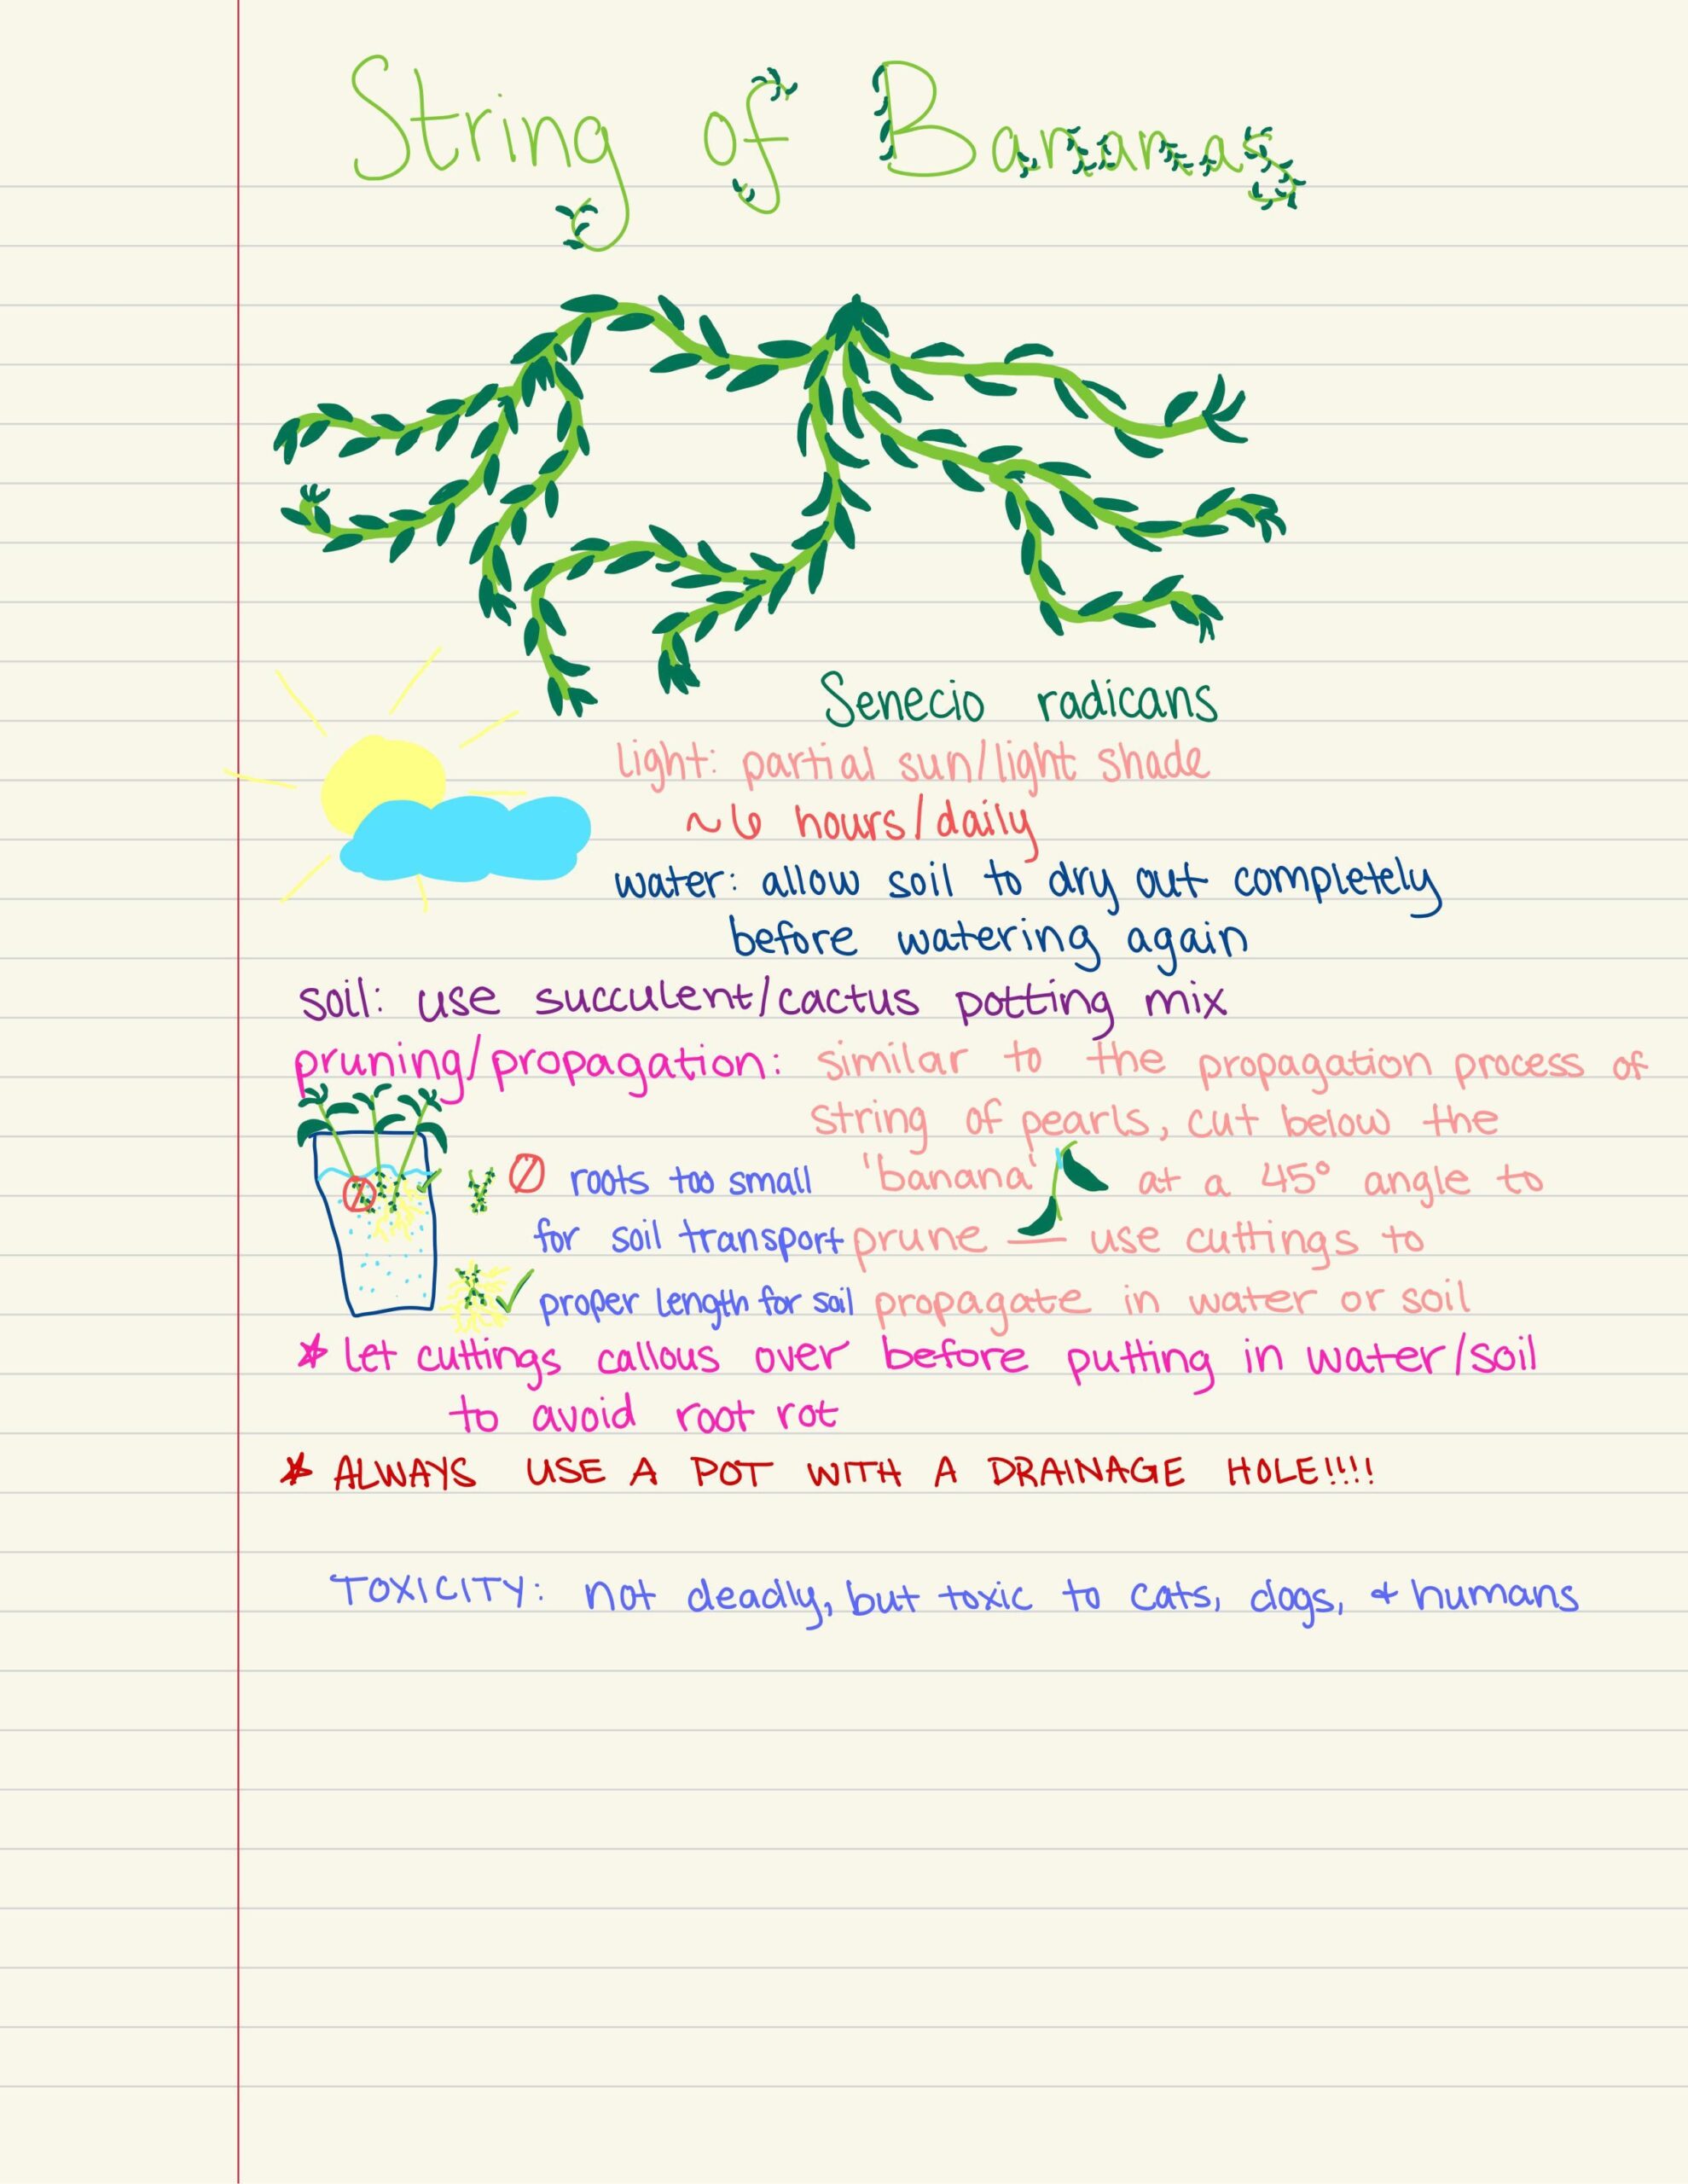 String of Bananas
Senecio radicans
light: partial sun/light shade
~6 hours/daily
water: allow soil to dry out completely
before watering again
soil: use succulent/cactus potting mix
pruning/propagation: similar to the propagation process of
string of pearls, cut below the
'banana' at a 45° angle to
prune — use cuttings to
propagate in water or soil
roots too small
for soil transport
proper length for soil
* let cuttings callous over before putting in water/soil
to avoid root rot
* ALWAYS USE A POT WITH A DRAINAGE HOLE!!!!
TOXICITY: not deadly, but toxic to cats, dogs, + humans